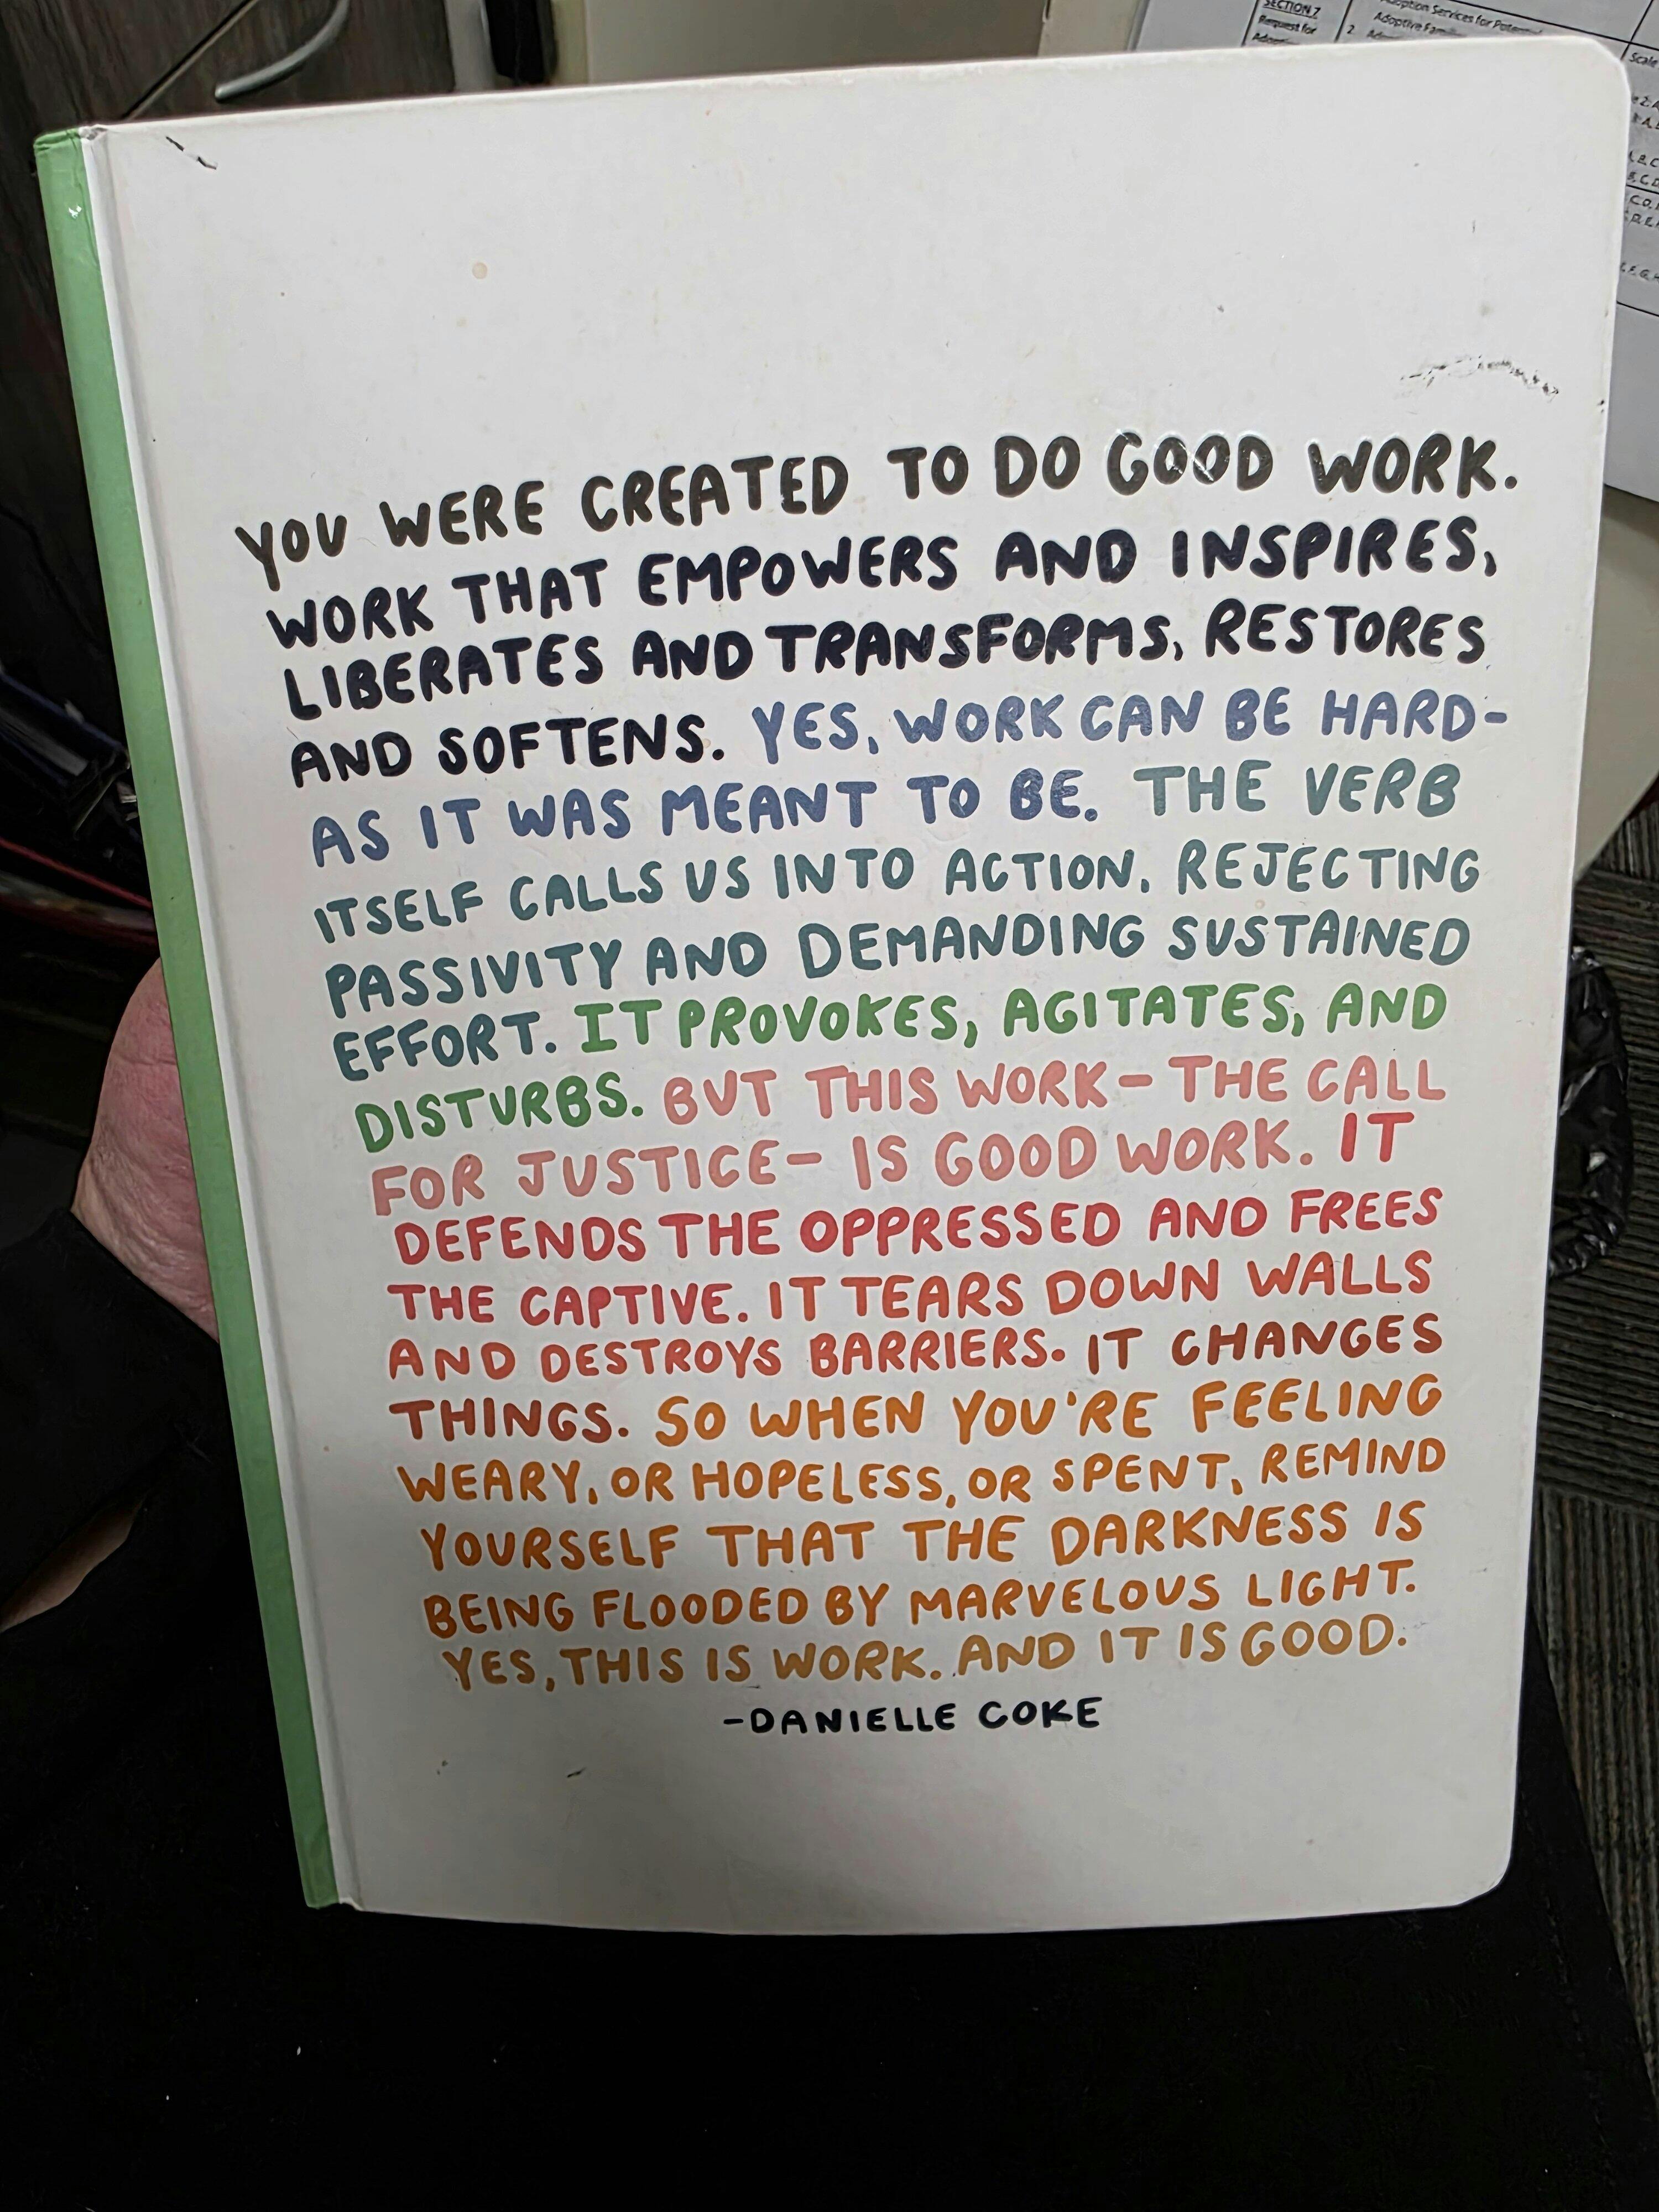 SECTION 7
Request for
Adoption Services for Potential
2. Adoptive Families
Scale
YOU WERE CREATED TO DO GOOD WORK.
WORK THAT EMPOWERS AND INSPIRES,
LIBERATES AND TRANSFORMS, RESTORES
AND SOFTENS. YES, WORK CAN BE HARD-
AS IT WAS MEANT TO BE. THE VERB
ITSELF CALLS US INTO ACTION, REJECTING
PASSIVITY AND DEMANDING SUSTAINED
EFFORT. IT PROVOKES, AGITATES, AND
DISTURBS. BUT THIS WORK - THE CALL
FOR JUSTICE - IS GOOD WORK. IT
DEFENDS THE OPPRESSED AND FREES
THE CAPTIVE. IT TEARS DOWN WALLS
AND DESTROYS BARRIERS. IT CHANGES
THINGS. SO WHEN YOU'RE FEELING
WEARY, OR HOPELESS, OR SPENT, REMIND
YOURSELF THAT THE DARKNESS IS
BEING FLOODED BY MARVELOUS LIGHT.
YES, THIS IS WORK. AND IT IS GOOD.
-DANIELLE COKE